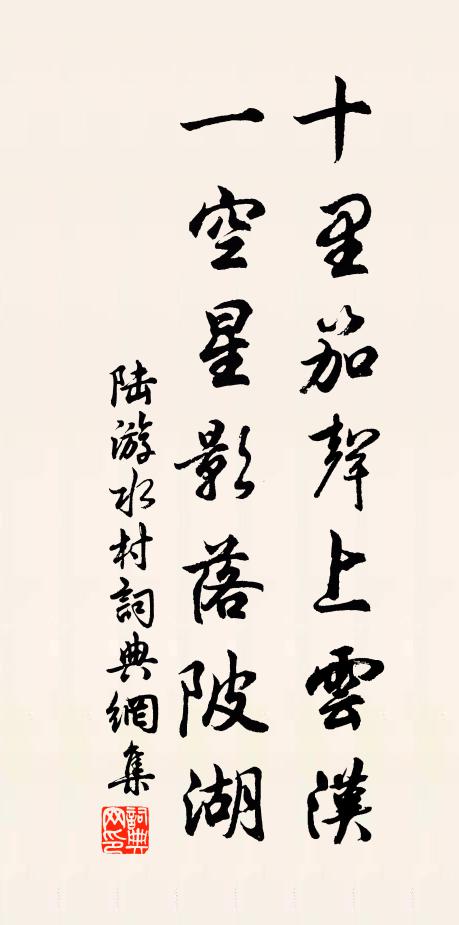 十里笳聲上雲漢
一空星影落陂湖
陸游水村詞典網集
詞典網印